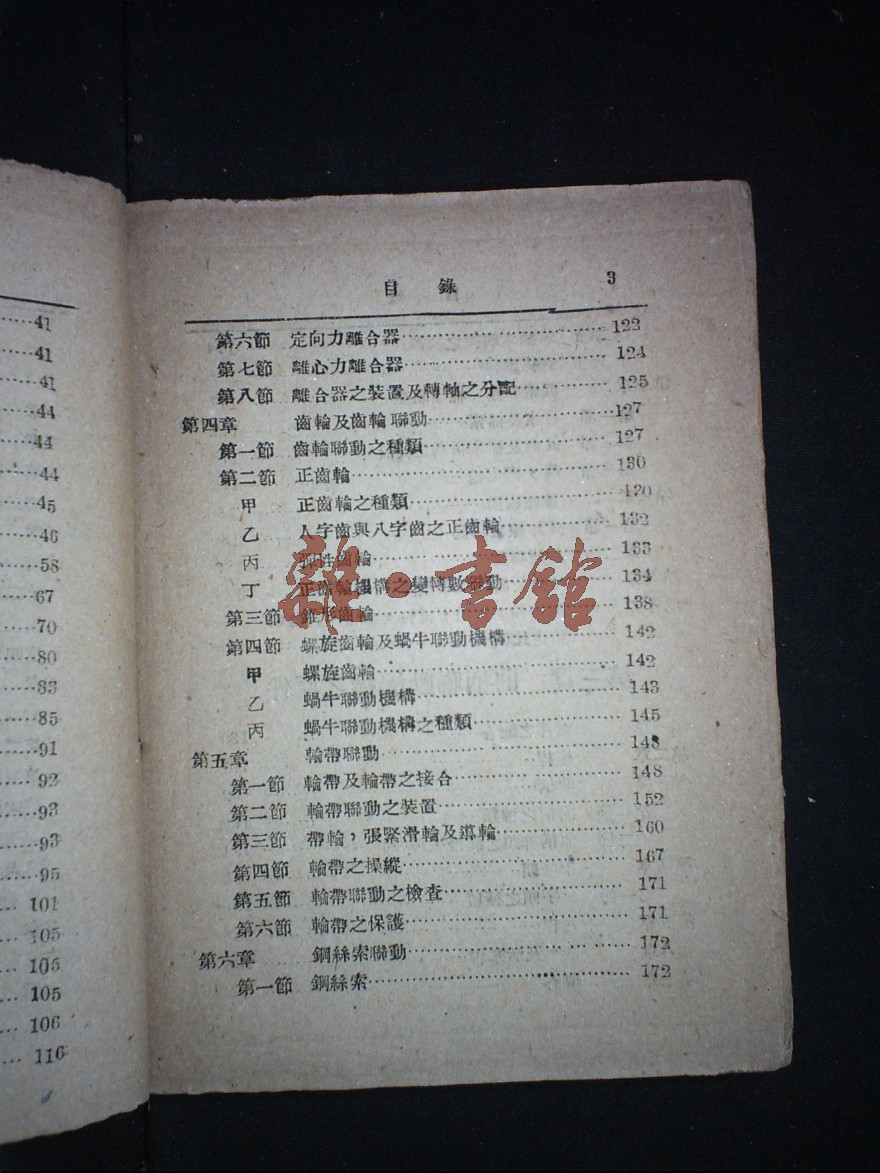 41
41
41
44
44
44
45
46
58
67
70
80
83
85
91
92
93
93
95
101
105
105
105
106
116
目 錄 3
第六節 定向力離合器 122
第七節 離心力離合器 124
第八節 離合器之裝置及轉軸之分配 125
第四章 齒輪及齒輪聯動 127
第一節 齒輪聯動之種類 127
第二節 正齒輪 130
甲 正齒輪之種類 130
乙 人字齒與八字齒之正齒輪 132
丙 齒輪 133
丁 正齒輪機構之變轉數聯動 134
第三節 錐形齒輪 138
第四節 螺旋齒輪及蝸牛聯動機構 142
甲 螺旋齒輪 142
乙 蝸牛聯動機構 143
丙 蝸牛聯動機構之種類 145
第五章 輪帶聯動 148
第一節 輪帶及輪帶之接合 148
第二節 輪帶聯動之裝置 152
第三節 帶輪，張緊滑輪及導輪 160
第四節 輪帶之操縱 167
第五節 輪帶聯動之檢查 171
第六節 輪帶之保護 171
第六章 鋼絲索聯動 172
第一節 鋼絲索 172
雜·書館